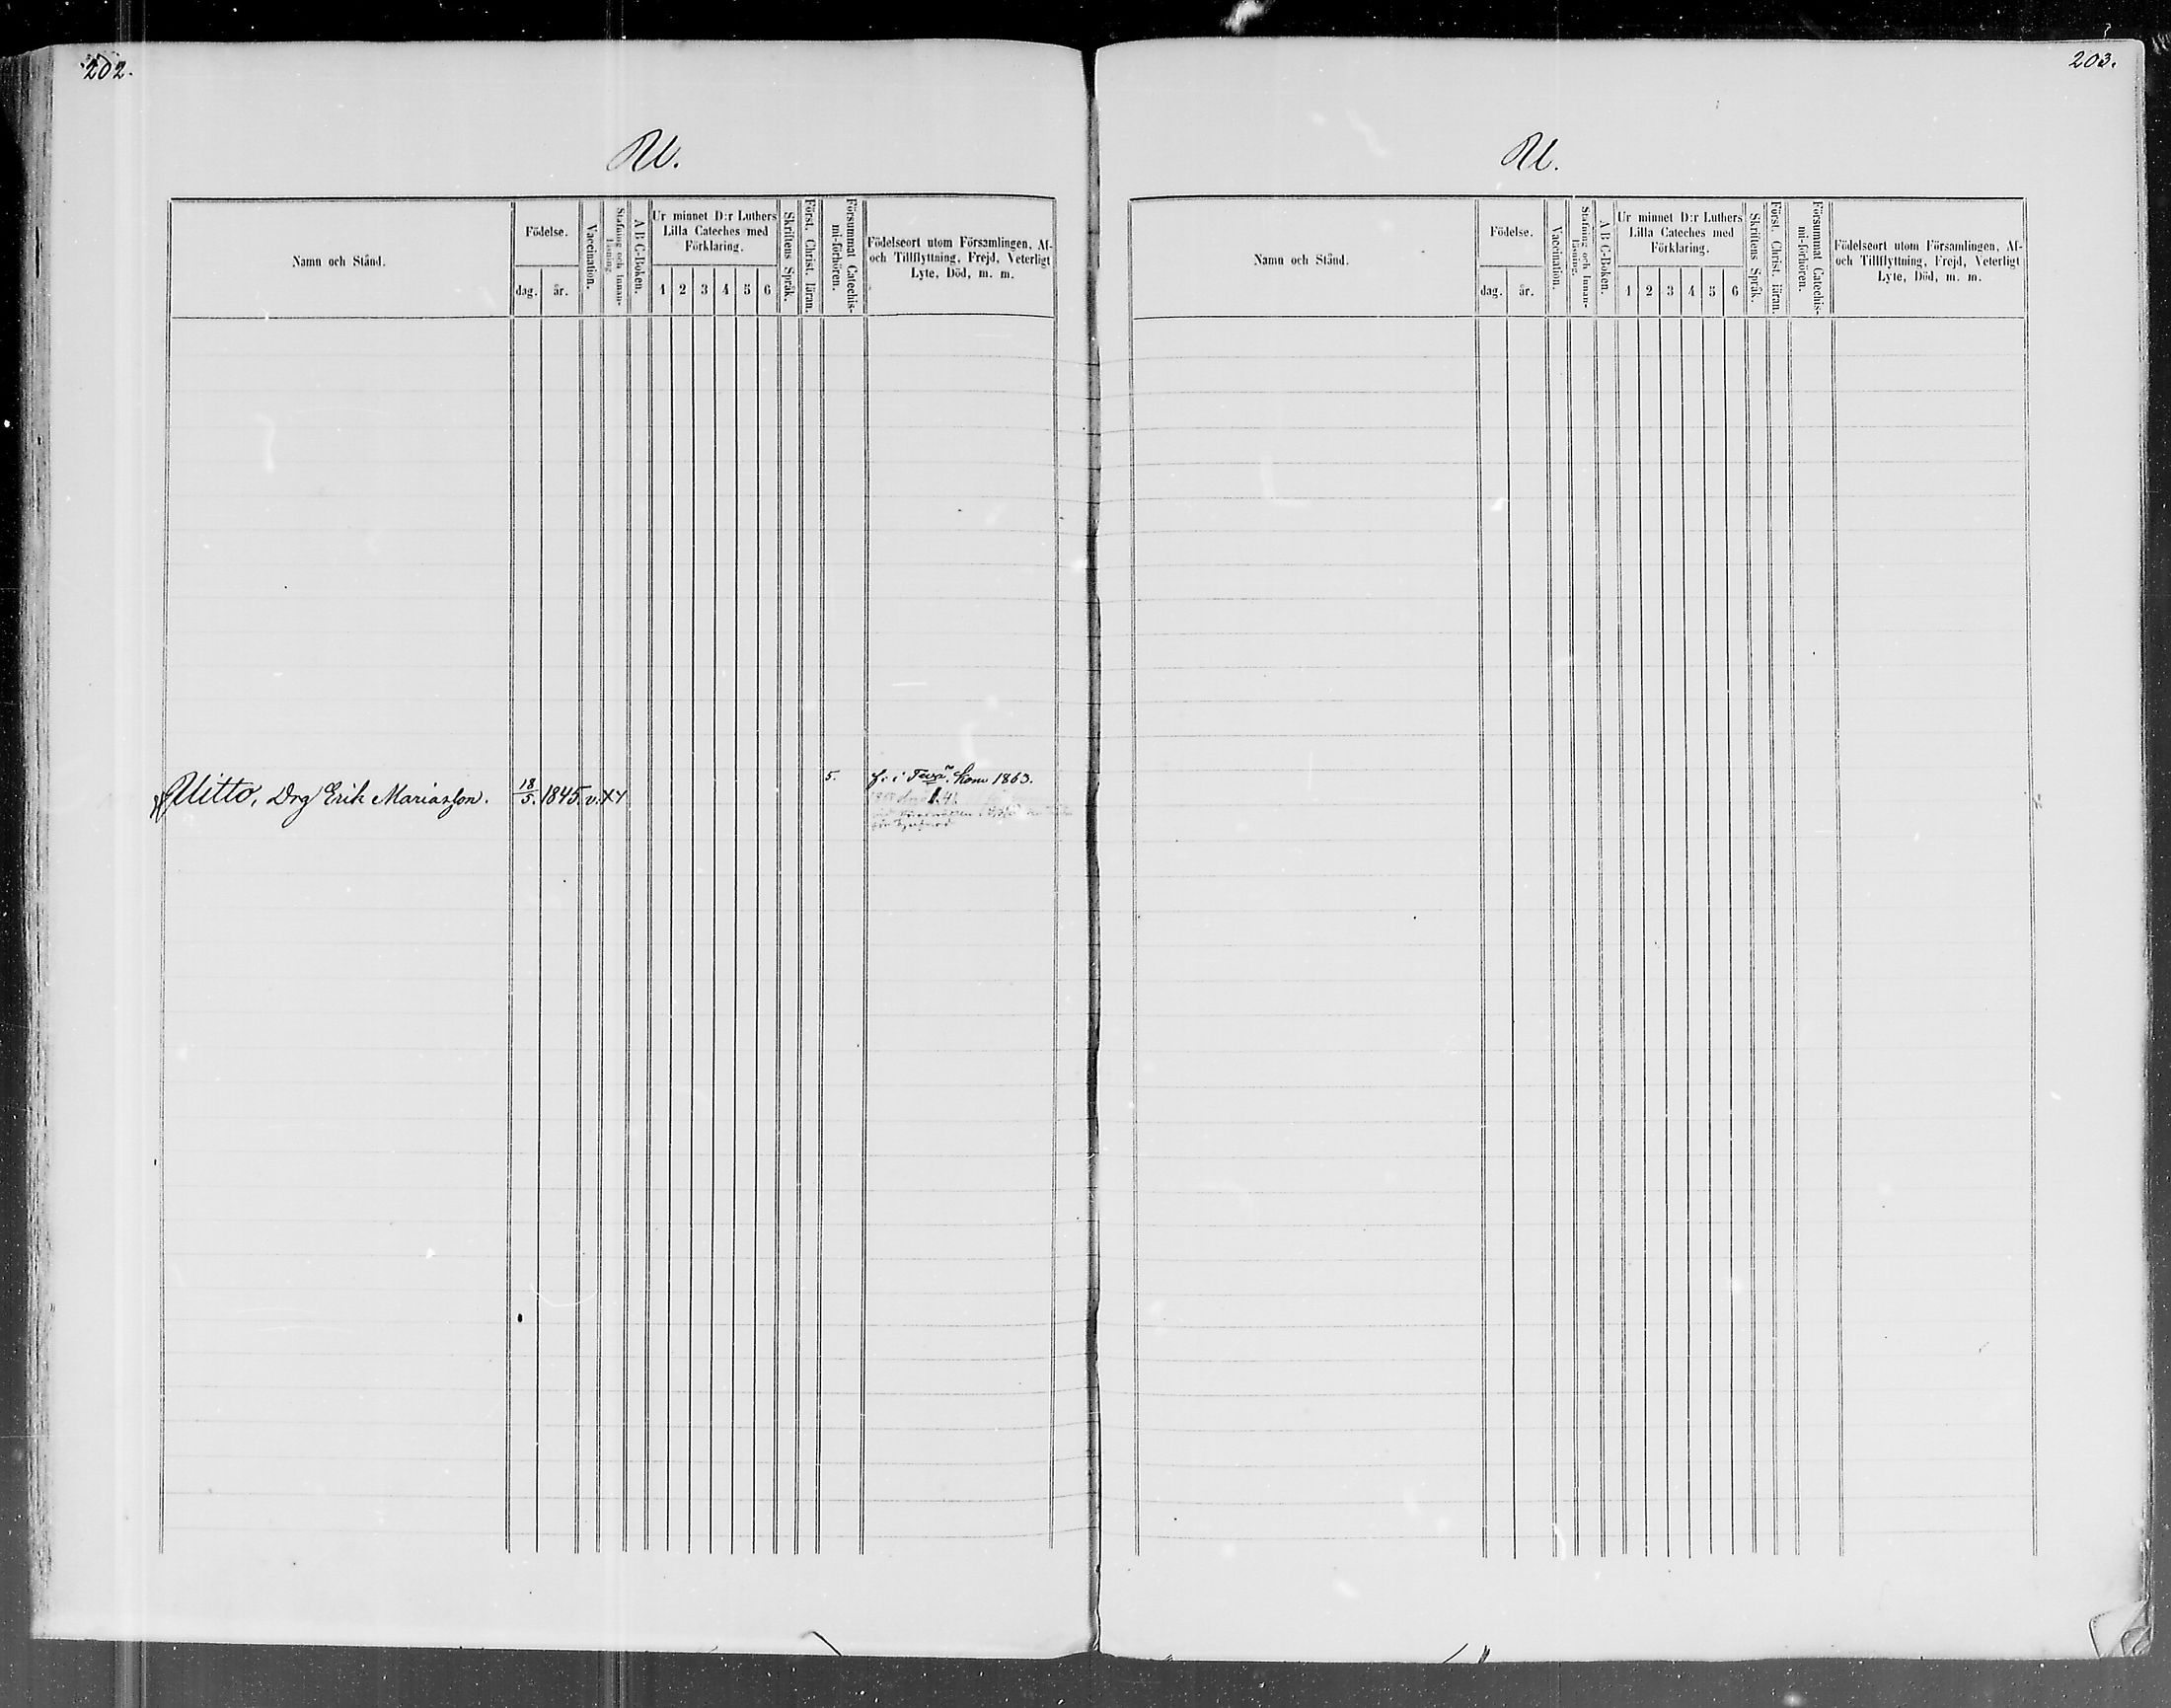 202.
U.
Namn och Stånd.
Födelse.
dag. år.
Vaccination.
Stafning och Innan-
läsning.
A B C-Boken.
Ur minnet D:r Luthers
Lilla Cateches med
Förklaring.
1 2 3 4 5 6
Skriftens Språk.
Först. Christ. läran.
Försummat Catechis-
mi-förhören.
Födelseort utom Församlingen, Af-
och Tillflyttning, Frejd, Veterligt
Lyte, Död, m. m.
Uitto, Drg Erik Mariasson. 18/5. 1845. v. XX 5. f. i Kom 1863.
203.
U.
Namn och Stånd.
Födelse.
dag. år.
Vaccination.
Stafning och Innan-
läsning.
A B C-Boken.
Ur minnet D:r Luthers
Lilla Cateches med
Förklaring.
1 2 3 4 5 6
Skriftens Språk.
Först. Christ. läran.
Försummat Catechis-
mi-förhören.
Födelseort utom Församlingen, Af-
och Tillflyttning, Frejd, Veterligt
Lyte, Död, m. m.